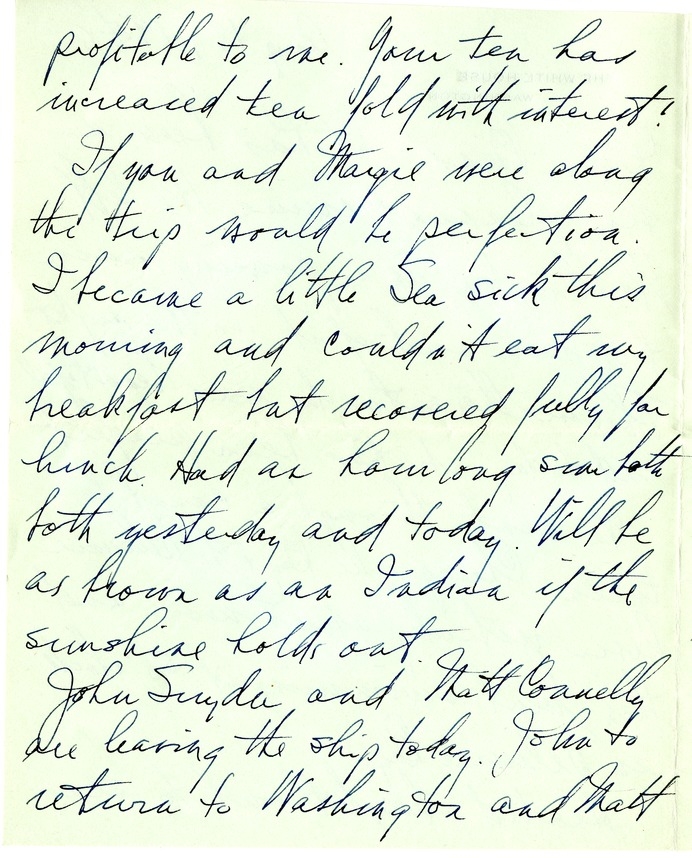 profitable to me. Your ten has
increased ten fold with interest!
If you and Margie were along
the trip would be perfection.
I became a little Sea sick this
morning and couldn't eat my
breakfast but recovered fully for
lunch. Had an hour long sun bath
both yesterday and today. Will be
as brown as an Indian if the
sunshine holds out.
John Snyder and Matt Connelly
are leaving the ship today. John to
return to Washington and Matt